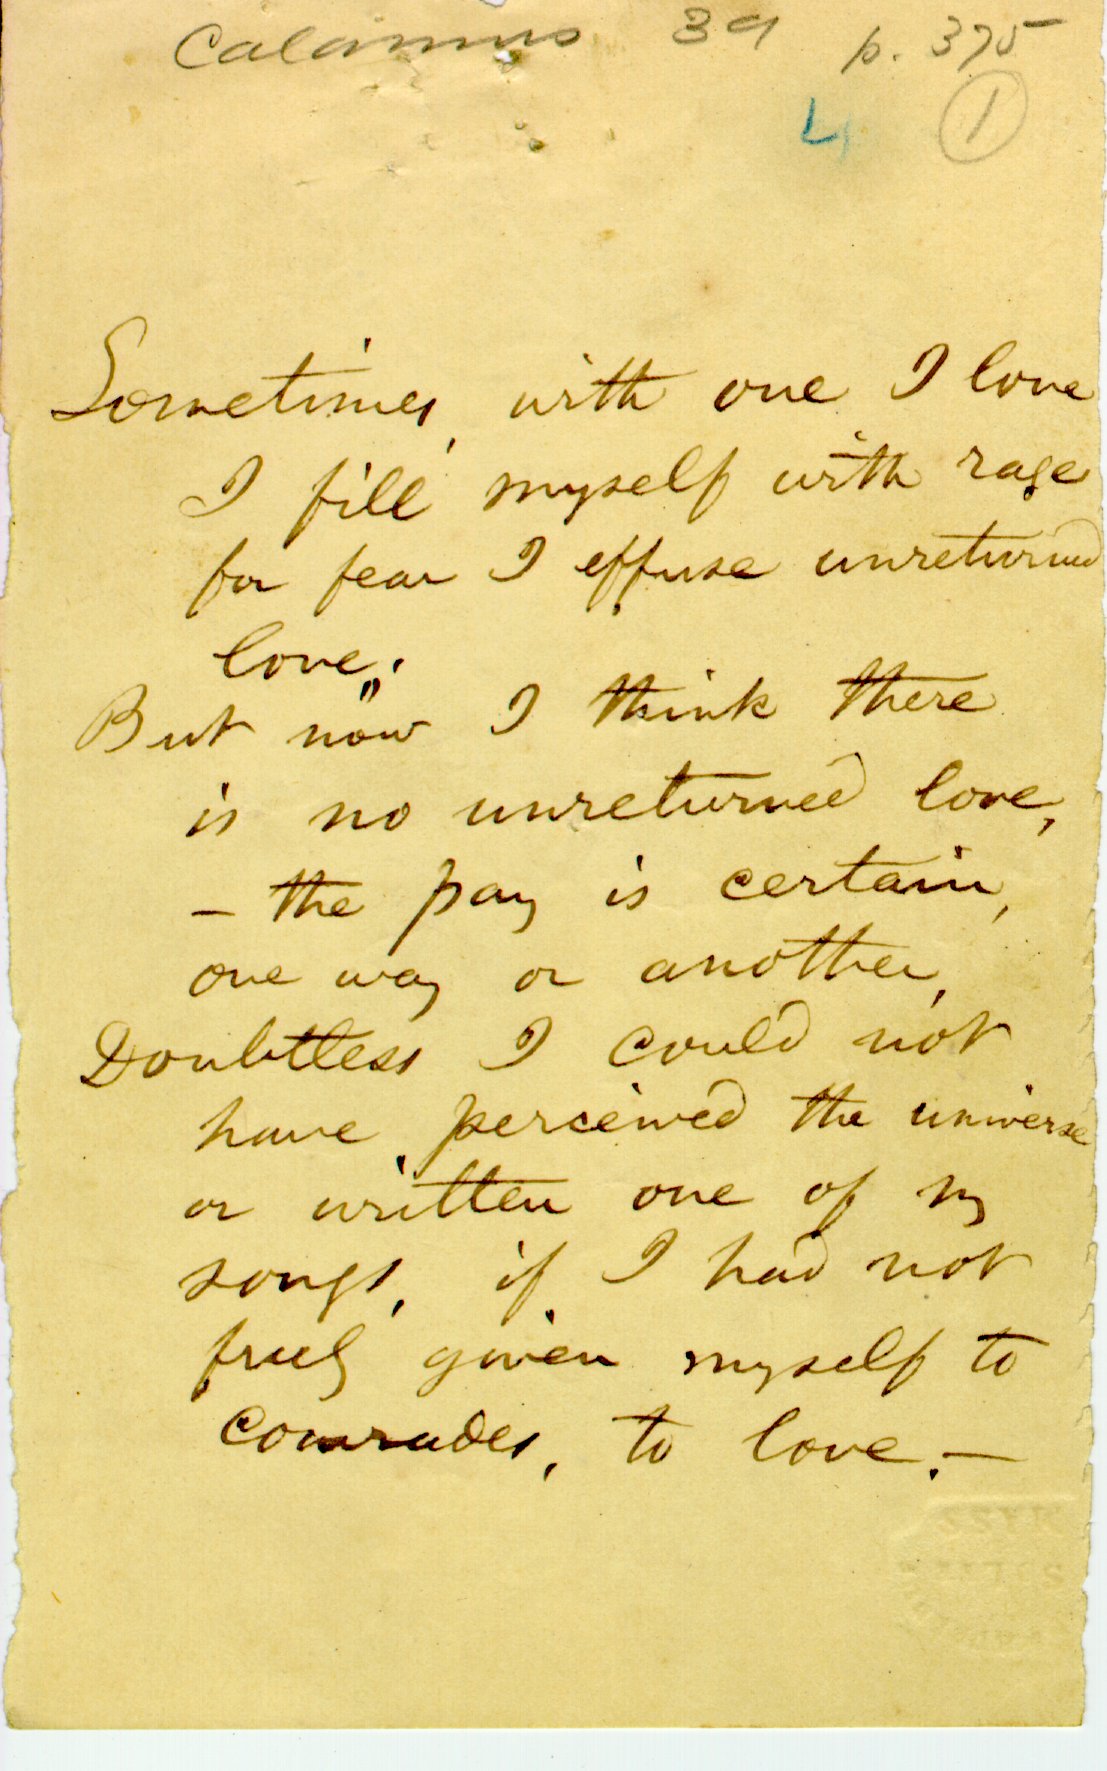 Calamus 39 p. 375
4 1
Sometimes, with one I love
I fill myself with rage
for fear I effuse unreturned
love;
But now I think there
is no unreturned love,
– the pay is certain,
one way or another,
Doubtless I could not
have perceived the universe
or written one of my
songs, if I had not
freely given myself to
comrades, to love.—